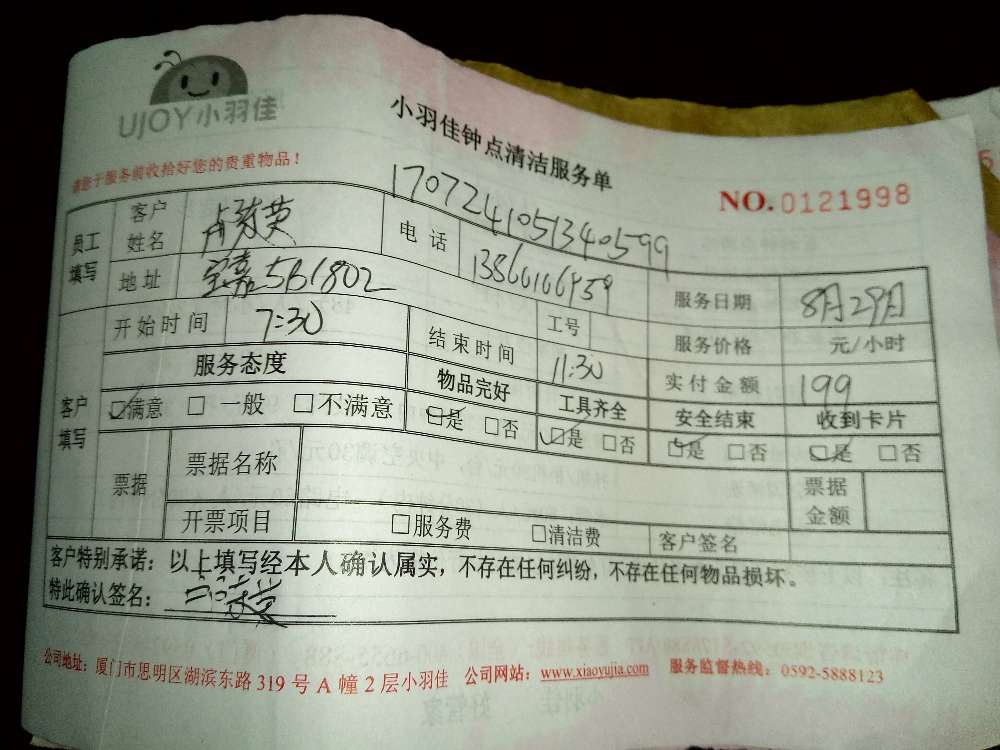 UJOY小羽佳
小羽佳钟点清洁服务单
请您于服务前收拾好您的贵重物品！
NO.0121998
1707241051340599
员工填写 客户姓名 电话 服务日期 8月29月
地址 宝嘉5B1802 13866166959
开始时间 7:30 结束时间 11:30 工号 服务价格 元/小时
实付金额 199
客户填写 服务态度 物品完好 工具齐全 安全结束 收到卡片
满意 一般 不满意 是 否 是 否 是 否 是 否
票据 票据名称 票据金额
开票项目 服务费 清洁费 客户签名
客户特别承诺：以上填写经本人确认属实，不存在任何纠纷，不存在任何物品损坏。
特此确认签名：
公司地址：厦门市思明区湖滨东路319号A幢2层小羽佳 公司网站：www.xiaoyujia.com 服务监督热线：0592-5888123